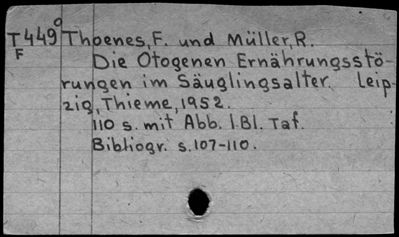 T449° Thoenes, F. und Müller, R.
F
Die Otogenen Ernährungsstö-
rungen im Säuglingsalter. Leip-
zig, Thieme, 1952.
110 s. mit Abb. 1.Bl. Taf.
Bibliogr. s.107-110.